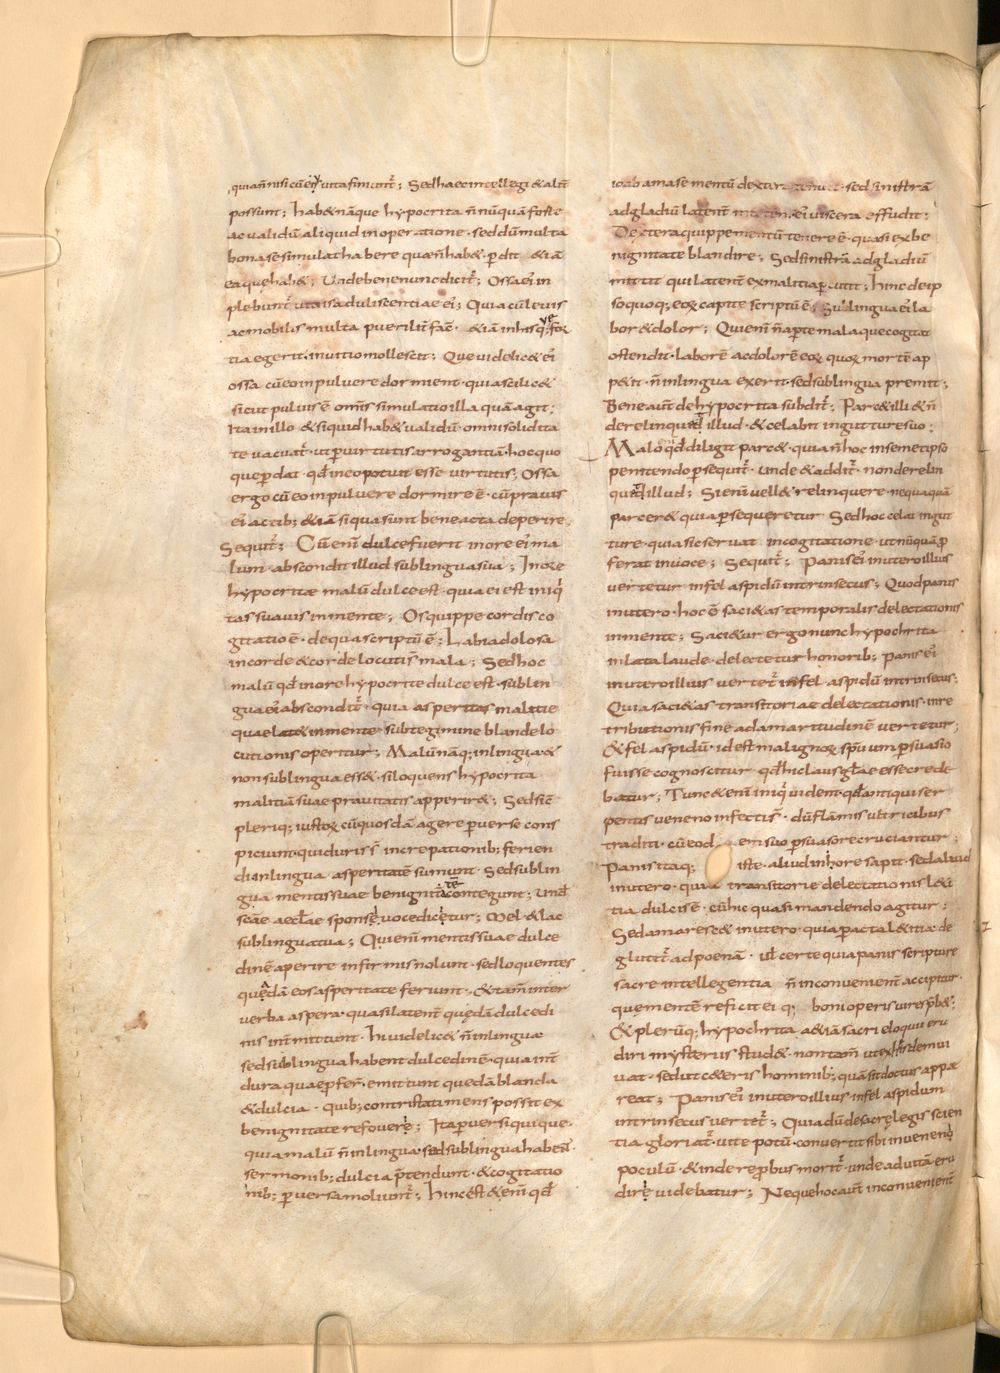 quia ñ nisi cū eiꝰ uita finiunt̄; Sed haec intellegi & alit̄
possunt; hab& nāque hypocrita ñ nūquā forte
ac validū aliquid in operatione· sed dū multa
bona se simulat habere quae ñ hab&· ꝑdit & iā
ea que hab&; Unde bene nunc dicit̄; Ossa eiꝰ in
plebunt̄ uitiis adulescentiae eiꝰ; Quia cū leuis
ac mobilis multa puerilit̄ facē· & iā in his q; for
tia egerit· in uitio mollescit; Que videlic& eiꝰ
ossa cū eo in puluere dormient· quia scilic&
sicut puluis ē· omnis simulatio illa quā agit;
Ita in illo & si quid hab& validū· omni solidita
te vacuat̄· ut ꝑ uirtutis arrogantiā· hoc quo
que ꝑdat· qđ in eo potuit esse uirtutis; Ossa
ergo cū eo in puluere dormire ē· cū prauis
eiꝰ actib; & iā si qua sunt bene acta deperire·
Sequit̄; Cū enī dulce fuerit in ore eiꝰ ma
lum· abscondit illud sub lingua sua; In ore
hypocritae malū dulce est· quia ei est iniqi
tas suauis in mente; Os quippe cordis co
gitatio ē· de qua scriptū ē; Labia dolosa
in corde & corde locuti s̄ mala; Sed hoc
malū qđ in ore hypocrite dulce est· sub lin
gua eiꝰ abscondit̄· quia asperitas malitie
quae lat& in mente· sub tegimine blande lo
cutionis operitur; Malū nāq; in lingua &
non sub lingua ess&· si loquens hypocrita
malitiā suae prauitatis apperir&; Sed sic̄
pleriq; iustoꝝ cū quosdā agere ꝑuerse cons
piciunt· qui duris s̄ increpationib; ferien
di· in lingua asperitatē sumunt· Sed sub lin
gua mentis suae benignitatē contegunt; Unđ
scāe aecl̄ae sponse uoce dicetur; Mel & lac
sub lingua tua; Qui enī mentis suae dulce
dinē aperire infirmis nolunt· sed loquentes
quēdā eos asperitate feriunt· & tam̄ inter
verba aspera· quasi latent̄ quędā dulcedi
nis int̄mittunt· hi videlic& ñ in lingua
sed sub lingua habent dulcedinē· quia int̄
dura quae ꝓfer̄n· emittunt quedā blanda
& dulcia· quib; contristati mens possit ex
benignitate refouere; Ita ꝑuersi quique·
quia malū ñ in lingua· sed sub lingua habent̄
sermonib; dulcia p̄tendunt· & cogitatio
nib; ꝑuersa moliunt̄; hinc est & enī qđ
ioab amase mentū dextera tenuit· sed sinistrā
ad gladiū latent̄ mittens· eiꝰ viscera effudit;
Dextera quippe mentū tenere ē· quasi ex be
nignitate blandire; Sed sinistrā ad gladiū
mittit qui latent̄ ex malitia ꝑcutit; hinc de ip
so quoq; eoꝝ capite scriptū ē; Sub lingua eiꝰ la
bor & dolor; Qui enī ñ aperte mala que cogitat
ostendit· laborē ac dolorē eoꝝ quoꝝ mortē ap
p&it· ñ in lingua exerit· sed sub lingua premit;
Bene aut̄ de hypocrita subdit̄; Parc& illi & ñ
derelinquet illud· & celabit in gutture suo;
Malo qđ diligit parc&· quia ñ hoc in semetipso
penitendo ꝑsequit̄· unde & addit̄· non derelin
quet illud; Si enī vell& relinquere· nequaquā
parcer& quia ꝑsequeretur· Sed hoc celat in gut
ture· quia sic seruat in cogitatione ut nūquā ꝓ
ferat in uoce; Sequit̄; Panis eiꝰ in utero illius
vertetur in fel aspidū intrinsecus; Quod panis
in utero· hoc ē saci&as temporalis delectationis
in mente; Saci&ur ergo nunc hypochrita
inlata laude· delectetur honorib; panis eiꝰ
in utero illius vertet̄ in fel aspidū intrinsecus;
Quia saci&as transitoriae delectationis· in re
tributionis fine ad amaritudinē vertetur;
& fel aspidū· id est malignoꝝ sp̄uum ꝑsuasio
fuisse cognoscitur· qđ hic laus gl̄ae esse crede
batur; Tunc & enī iniqi vident· qđ antiqui ser
pentis veneno infecti s̄· dū flāmis ultricibus
traditi· cū eod em suo ꝑsuasore cruciantur;
Panis itaq; iste· aliud in ore sapit· sed aliud
in utero· quia transitorie delectationis l&i
tia dulcis ē· cū hic quasi mandendo agitur;
Sed amaresc& in utero· quia ꝑacta l&itia· de
gluttit̄ ad poenā· ul̄ certe quia panis scripture
sacre intellegentia ñ inconvenient̄ accipitur·
que mentē reficit ei q; boni operis uires p̄b&;
& plerūq; hypochrita & iā sacri eloquii eru
diri mysteriis stud&· non tam̄ ut ex his d̄em ui
uat· sed ut c&eris hominib; quā sit doctus appa
reat; Panis eiꝰ in utero illius· in fel aspidum
intrinsecus vertet̄; Quia dū de sacrę legis scien
tia gloriat̄· uite potū· convertit sibi in veneni
poculū· & inde reꝓbus morit̄· unde ad uitā eru
dire videbatur; Neque hoc aut̄ inconvenient̄